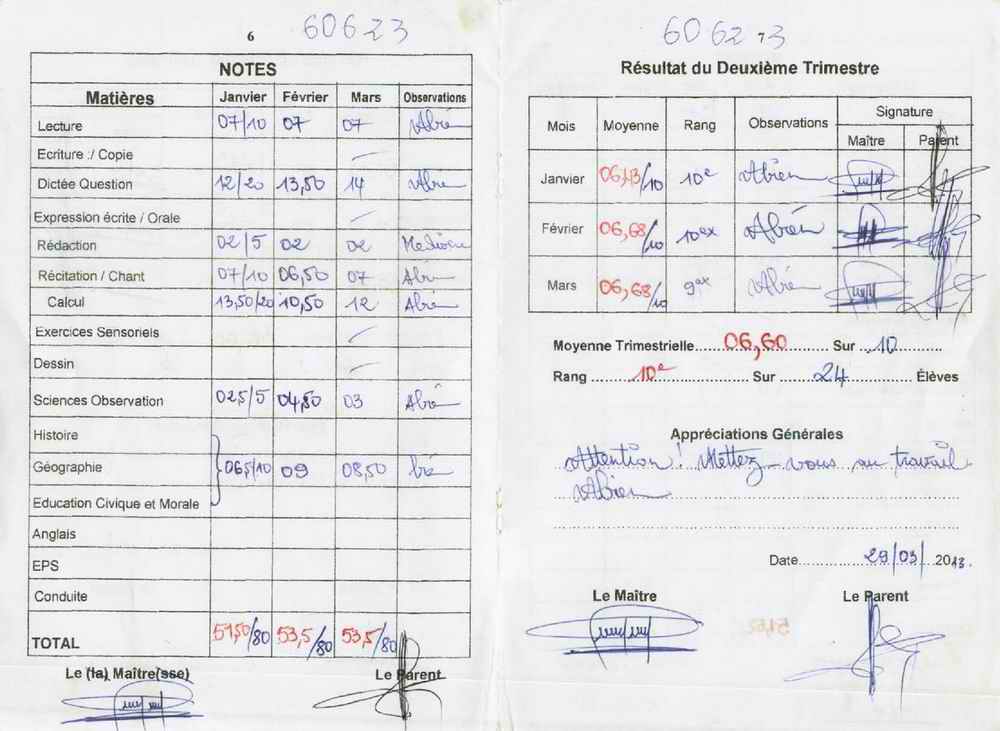 6
60623
NOTES
Matières Janvier Février Mars Observations
Lecture 07/10 07 07 Abien
Ecriture :/ Copie
Dictée Question 12/20 13,50 14 Abien
Expression écrite / Orale
Rédaction 02/5 02 02
Récitation / Chant 07/10 06,50 07 Abien
Calcul 13,50/20 10,50 12 Abien
Exercices Sensoriels
Dessin
Sciences Observation 02,5/5 04,50 03 Abien
Histoire
Géographie 06,5/10 09 08,50 bien
Education Civique et Morale
Anglais
EPS
Conduite
TOTAL 51,50/80 53,5/80 53,5/80
Le (la) Maître(sse) Le Parent
60623
7
Résultat du Deuxième Trimestre
Mois Moyenne Rang Observations Signature
Maître Parent
Janvier 06,43/10 10e Abien
Février 06,68/10 10ex Abien
Mars 06,68/10 9ex Abien
Moyenne Trimestrielle 06,60 Sur 10
Rang 10e Sur 24 Élèves
Appréciations Générales
Attention! Mettez-vous au travail
Abien
Date 29/03/2013.
Le Maître Le Parent